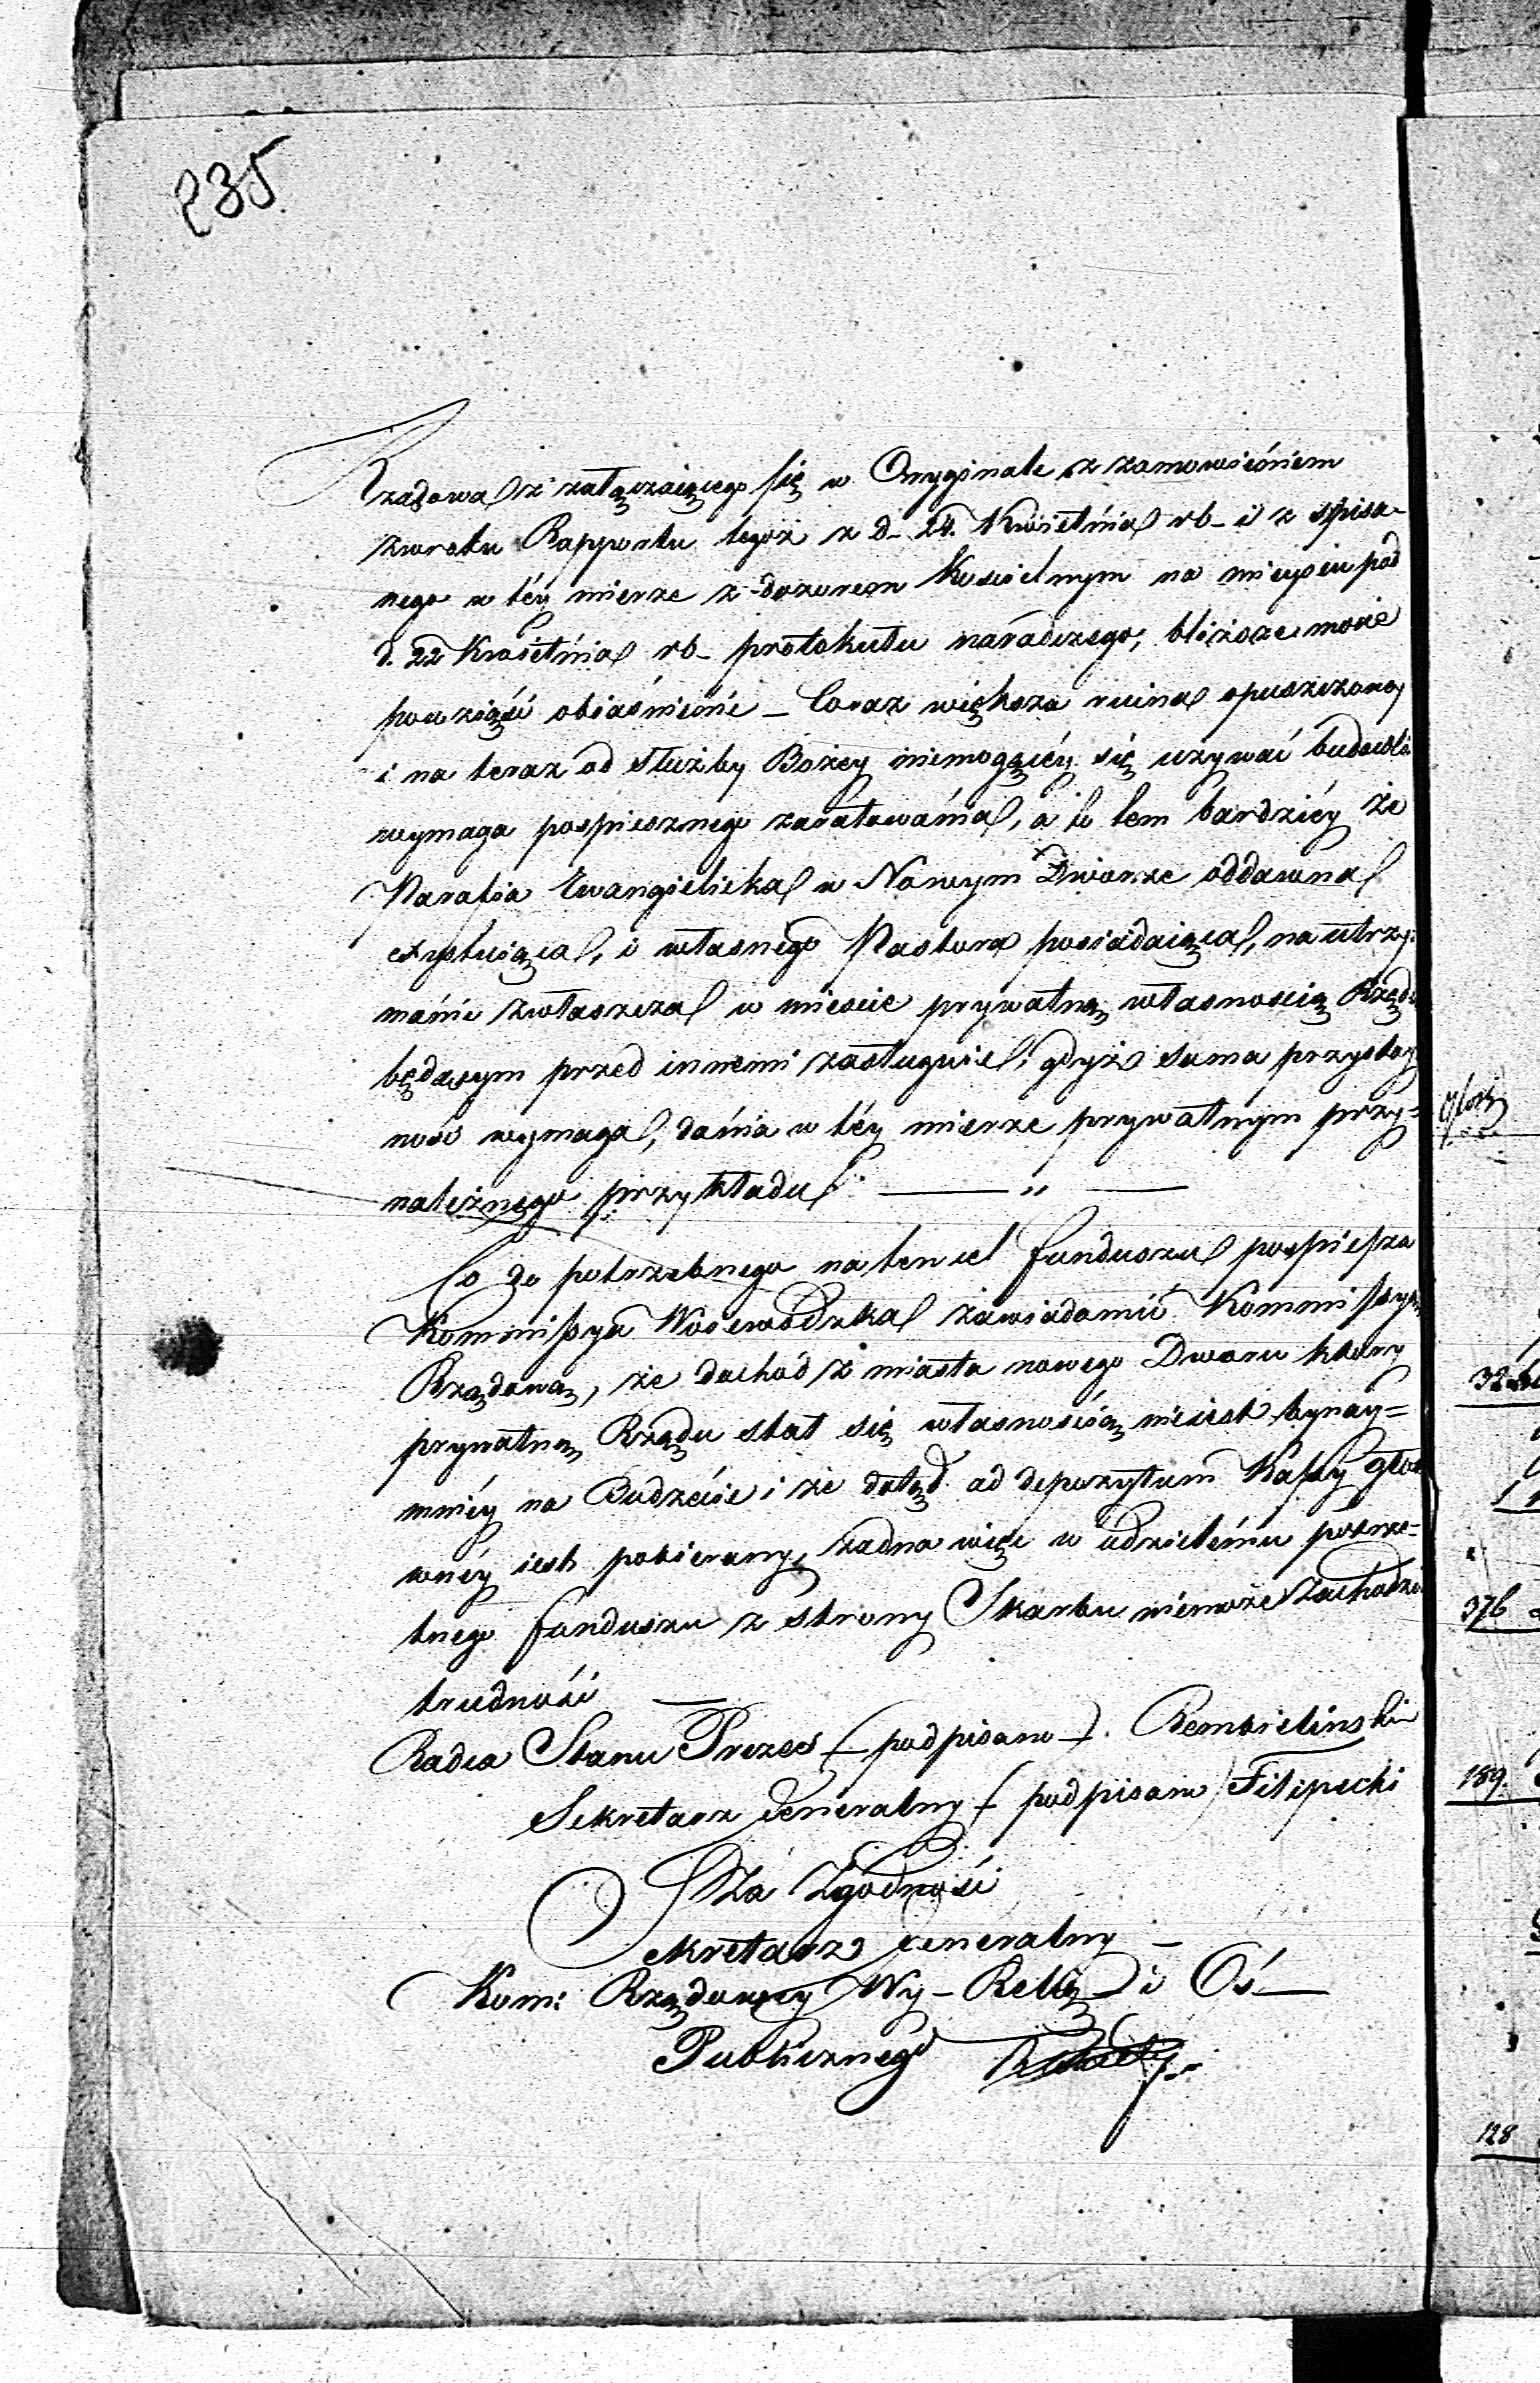 235.
Rządowa z załączaiącego się w Oryginale z zamowieniem
zwrotu Rapportu tegoż z d. 24. Kwietnia rb- i z spisa-
nego w téy mierze z dozorem Kościelnym na mieyscu pod
d. 22 Kwietnia rb- protokułu naradczego, bliższe może
powziąść obiaśnienie – Coraz większa ruina opuszczoney
i na teraz od służby Bożey niemogącéy się używać budowli
wymaga pospiesznego zaratowania, a to tem bardziéy że
Parafia Ewangielicka w Nowym Dworze oddawna
exystuiąca, i własnego Pastora posiadaiąca, na utrzy-
manie zwłaszcza w mieście prywatną własnością Rządu
będącym przed innemi zasługuie, gdyż sama przystoy-
ność wymaga, dania w téy mierze prywatnym przy=
należnego przykładu. — „ —
Co do potrzebnego na ten cel funduszu pospiesza
Kommissya Woiewódzka zawiadomić Kommissyą
Rządową, że dochód z miasta nowego Dworu który
prywatną Rządu stał się własnością nieiest bynay=
mniéy na Budżecie i że dotąd ad depozytum Kassy głó-
wnéy iest pobierany, żadna więc w udzieleniu potrze=
bnego funduszu z strony Skarbu niemoże zachodzić
trudność —
Radca Stanu Prezes (podpisano) Rembieliński
Sekretarz Jeneralny (podpisano) Filipecki
Za Zgodność
Sekretarz Jeneralny –
Kom: Rządowey Wy- Relig- i Oś-
Publicznego
376
189.
128